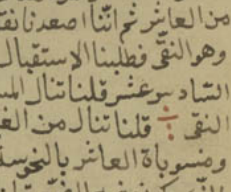 من العاشر ثم اننا اصعدنا نف
وهو النقى فطلبنا الاستقبال
السادس عشر قلنا تنال الم
النقى ؞ قلنا تنال من الغ
ومنسوباة العاشر بالنحوسة